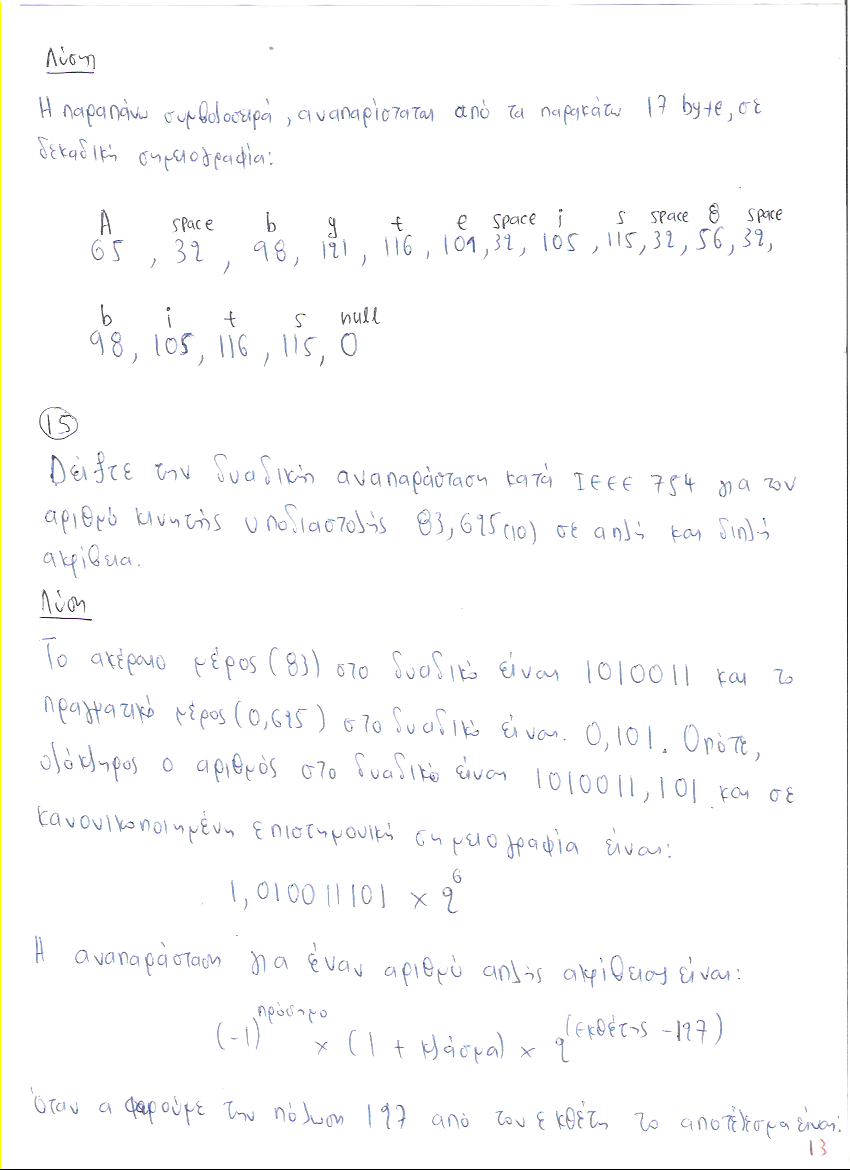 Λύση
Η παραπάνω συμβολοσειρά, αναπαρίσταται από τα παρακάτω 17 byte, σε
δεκαδική σημειογραφία:
A space b y t e space i s space 8 space
65 , 32 , 98, 121 , 116 , 101 ,32, 105 , 115, 32, 56, 32,
b i t s null
98, 105, 116 , 115, 0
15
Δείξτε την δυαδική αναπαράσταση κατά IEEE 754 για τον
αριθμό κινητής υποδιαστολής 83,625(10) σε απλή και διπλή
ακρίβεια.
Λύση
Το ακέραιο μέρος (83) στο δυαδικό είναι 1010011 και το
πραγματικό μέρος (0,625) στο δυαδικό είναι. 0,101. Οπότε,
ολόκληρος ο αριθμός στο δυαδικό είναι 1010011,101 και σε
κανονικοποιημένη επιστημονική σημειογραφία είναι:
1,010011101 × 2^6
Η αναπαράσταση για έναν αριθμό απλής ακρίβειας είναι:
(-1)^πρόσημο × (1 + κλάσμα) × 2^(εκθέτης -127)
Όταν αφαιρούμε την πόλωση 127 από τον εκθέτη το αποτέλεσμα είναι:
13